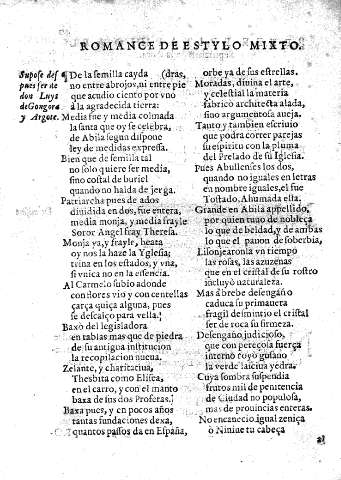 ROMANCE DE ESTYLO MIXTO.
Supose des
pues ser de
don Luys
de Gongora
y Argote.
¶ De la semilla cayda (dras,
no entre abrojos, ni entre pie
que acudio ciento por vno
à la agradecida tierra:
Media fue y media colmada
la santa que oy se celebra,
de Abila segun dispone
ley de medidas expressa.
Bien que de semilla tal
no solo quiere ser media,
sino costal de buriel
quando no haida de jerga.
Patriarcha pues de ados
diuidida en dos, fue entera,
medio monja, y media frayle
Soror Angel fray Theresa.
Monja ya, y frayle, beata
oy nos la haze la Yglesia;
trina en los estados, y vna,
si vnica no en la essencia.
Al Carmelo subio adonde
con flores vio y con centellas
çarça quiça alguna, pues
se descalço para vella.
Baxò del legislador
en tablas mas que de piedra
de su antigua institucion
la recopilacion nueua.
Zelante, y charitatiua,
Thesbita como Elisea,
en el carro, y con el manto
baxa de sus dos Profetas.
Baxa pues, y en pocos años
tantas fundaciones dexa,
quantos passos da en España,
orbe ya de sus estrellas.
Moradas, diuino el arte,
y celestial la materia
fabricò architecta alada,
sino argumentosa aueja.
Tanto y tambien escriuio
que podra correr parejas
su espiritu con la pluma
del Prelado de su Iglesia.
Pues Abullenses los dos,
quando no iguales en letras
en nombre iguales, el fue
Tostado. Ahumada ella.
Grande en Abila appellido,
por quien tuuo de nobleça
lo que de beldad, y de ambas
lo que el pauon de soberbia,
Lisonjearonla vn tiempo
las rosas, las azuzenas
que en el cristal de su rostro
incluyò naturaleza.
Mas à brebe desengaño
caduca su primauera
fragil desmintio el cristal
ser de roca su firmeza.
Desengaño judicioso,
que con pereçosa fuerça
interno royò gusano
la verde lasciua yedra.
Cuya sombra suspendia
frutos mil de penitencia
de Ciudad no populosa,
mas de prouincias enteras.
No encanecio igual zeniça
ò Niniue tu cabeça